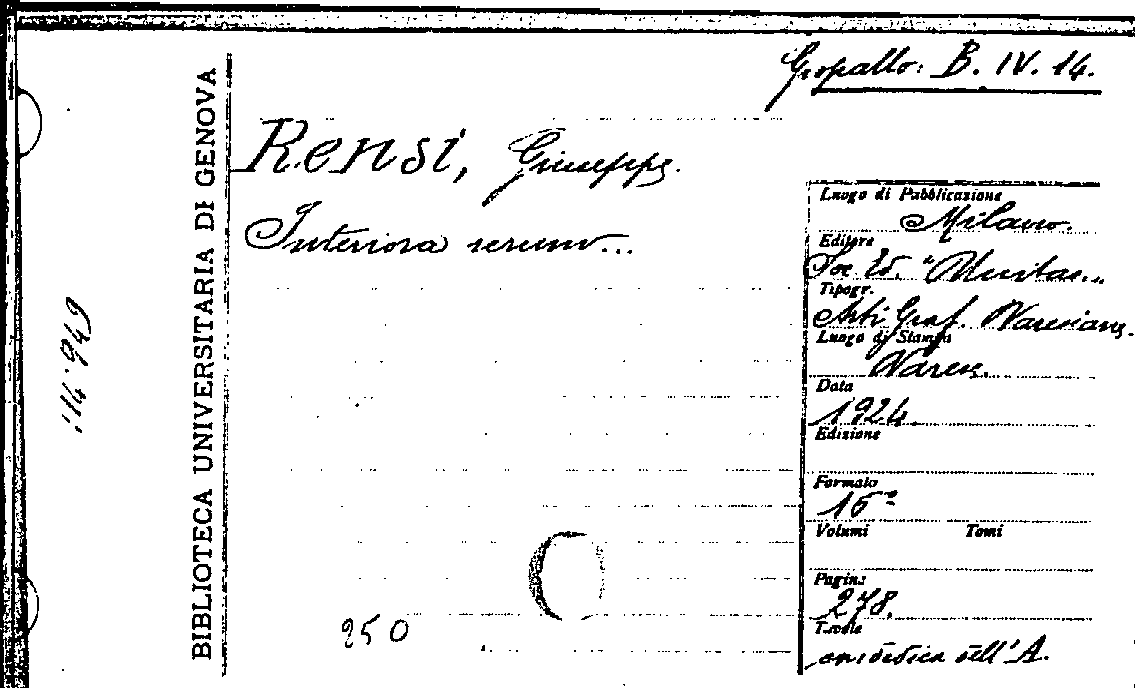 Gropallo: B. IV. 14.
BIBLIOTECA UNIVERSITARIA DI GENOVA
Rensi, Giuseppe.
Interiora rerum...
Luogo di Pubblicazione
Milano.
Editore
Soc. Ed. "Unitas"
Tipogr.
Arti Graf. Varesiane.
Luogo di Stampa
Varese.
Data
1924.
Edizione
Formato
16°
Volumi Tomi
Pagine
278.
Tavole
con dedica dell'A.
250
114.949